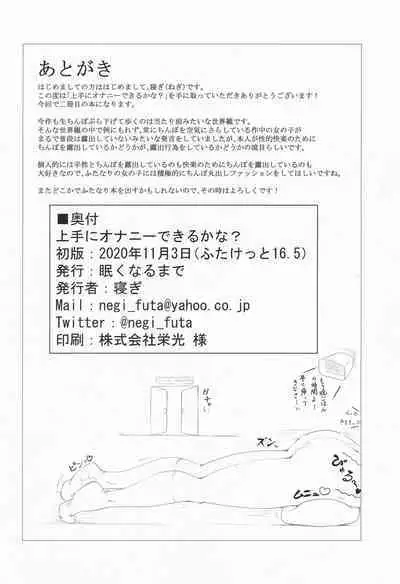 あとがき
はじめましての方ははじめまして、寝ぎ(ねぎ)です。
この度は「上手にオナニーできるかな?」を手に取っていただきありがとうございます!
今回で二冊目の本になります。
今作も生ちんぽぶら下げて歩くのは当たり前みたいな世界観です。
そんな世界観の中で例にもれず、常にちんぽを空気にさらしている作中の女の子が
まるで普段は露出していないみたいな発言をしていましたが、本人が性的快楽のために
ちんぽを露出しているかどうかが、露出行為をしているかどうかの境目らしいです。
個人的には平然とちんぽを露出しているのも快楽のためにちんぽを露出しているのも
大好きなので、ふたなりの女の子には積極的にちんぽ丸出しファッションをしてほしいですね。
またどこかでふたなり本を出すかもしれないので、その時はよろしくです!
■奥付
上手にオナニーできるかな?
初版:2020年11月3日(ふたけっと16.5)
発行:眠くなるまで
発行者:寝ぎ
Mail:negi_futa@yahoo.co.jp
Twitter:@negi_futa
印刷:株式会社栄光 様
ガチャッ
ズン、
ピーン♡
ムニュ♡
びゅる〜♡